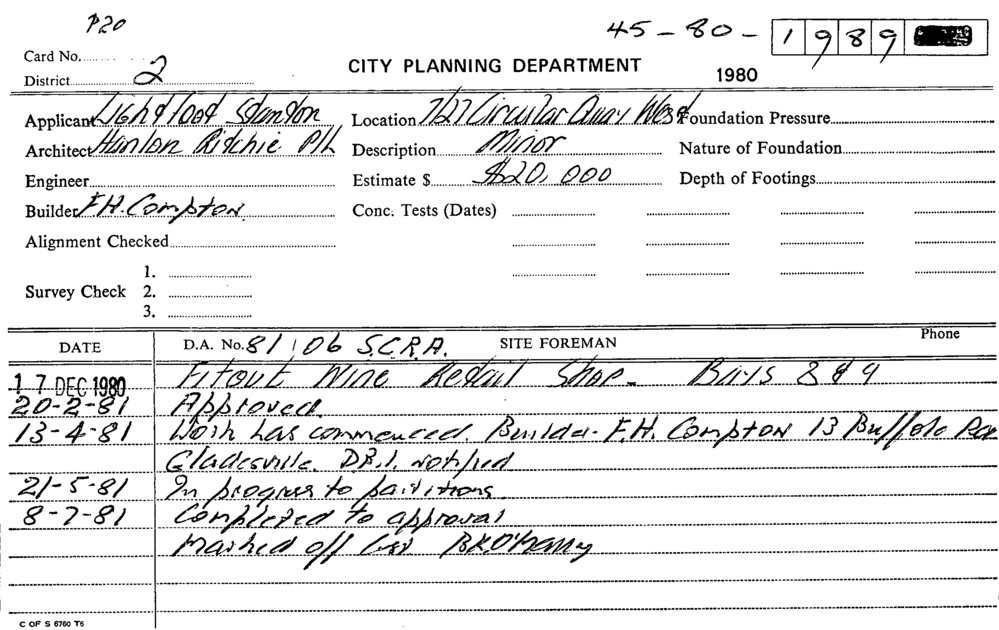 P20
45-80- 1989
Card No.
District 2
CITY PLANNING DEPARTMENT
1980
Applicant Lightfoot Stanton Location 7/27 Circular Quay West Foundation Pressure
Architect Hanlon Ritchie P/L Description Minor Nature of Foundation
Engineer Estimate $ $20,000 Depth of Footings
Builder F.H. Compton Conc. Tests (Dates)
Alignment Checked
1.
Survey Check 2.
3.
DATE D.A. No. 81/06 S.C.R.A. SITE FOREMAN Phone
17 DEC 1980 Fitout Wine Retail Shop - Bays 8 & 9
20-2-81 Approved.
13-4-81 Work has commenced. Builder - F.H. Compton 13 Buffalo
Gladesville. D.B.I. notified
21-5-81 In progress to partitions
8-7-81 Completed to approval
Marked off
C OF S 6760 T6